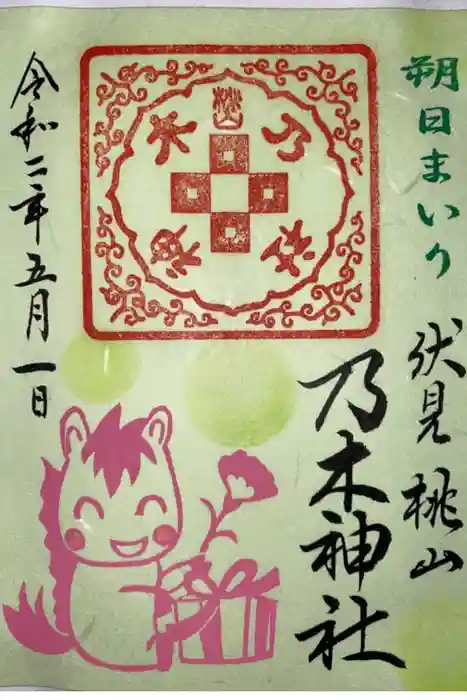 朔日まいり
伏見桃山
乃木神社
桃山
乃木
令和二年五月一日